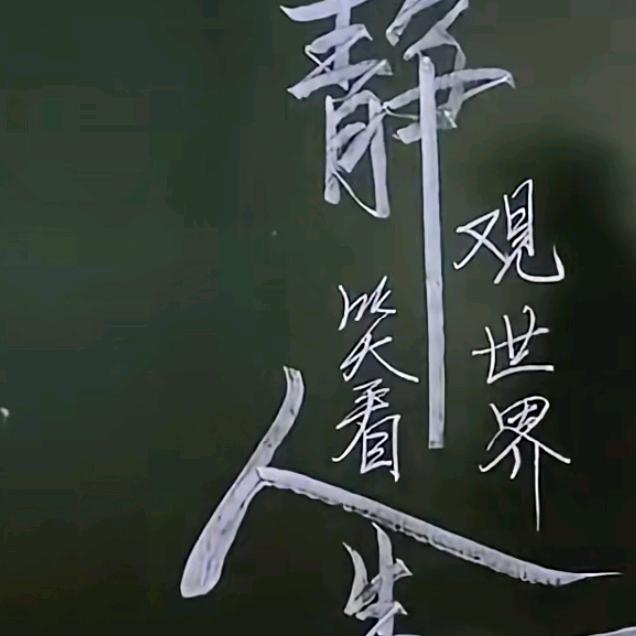 静观世界
笑看人生